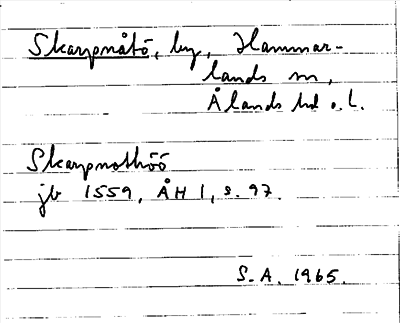 Skarpnåtö, by, Hammar-
lands sn,
Ålands hd o. l.
Skarpnothöö
jb 1559, ÅH 1, s. 97.
S.A. 1965.